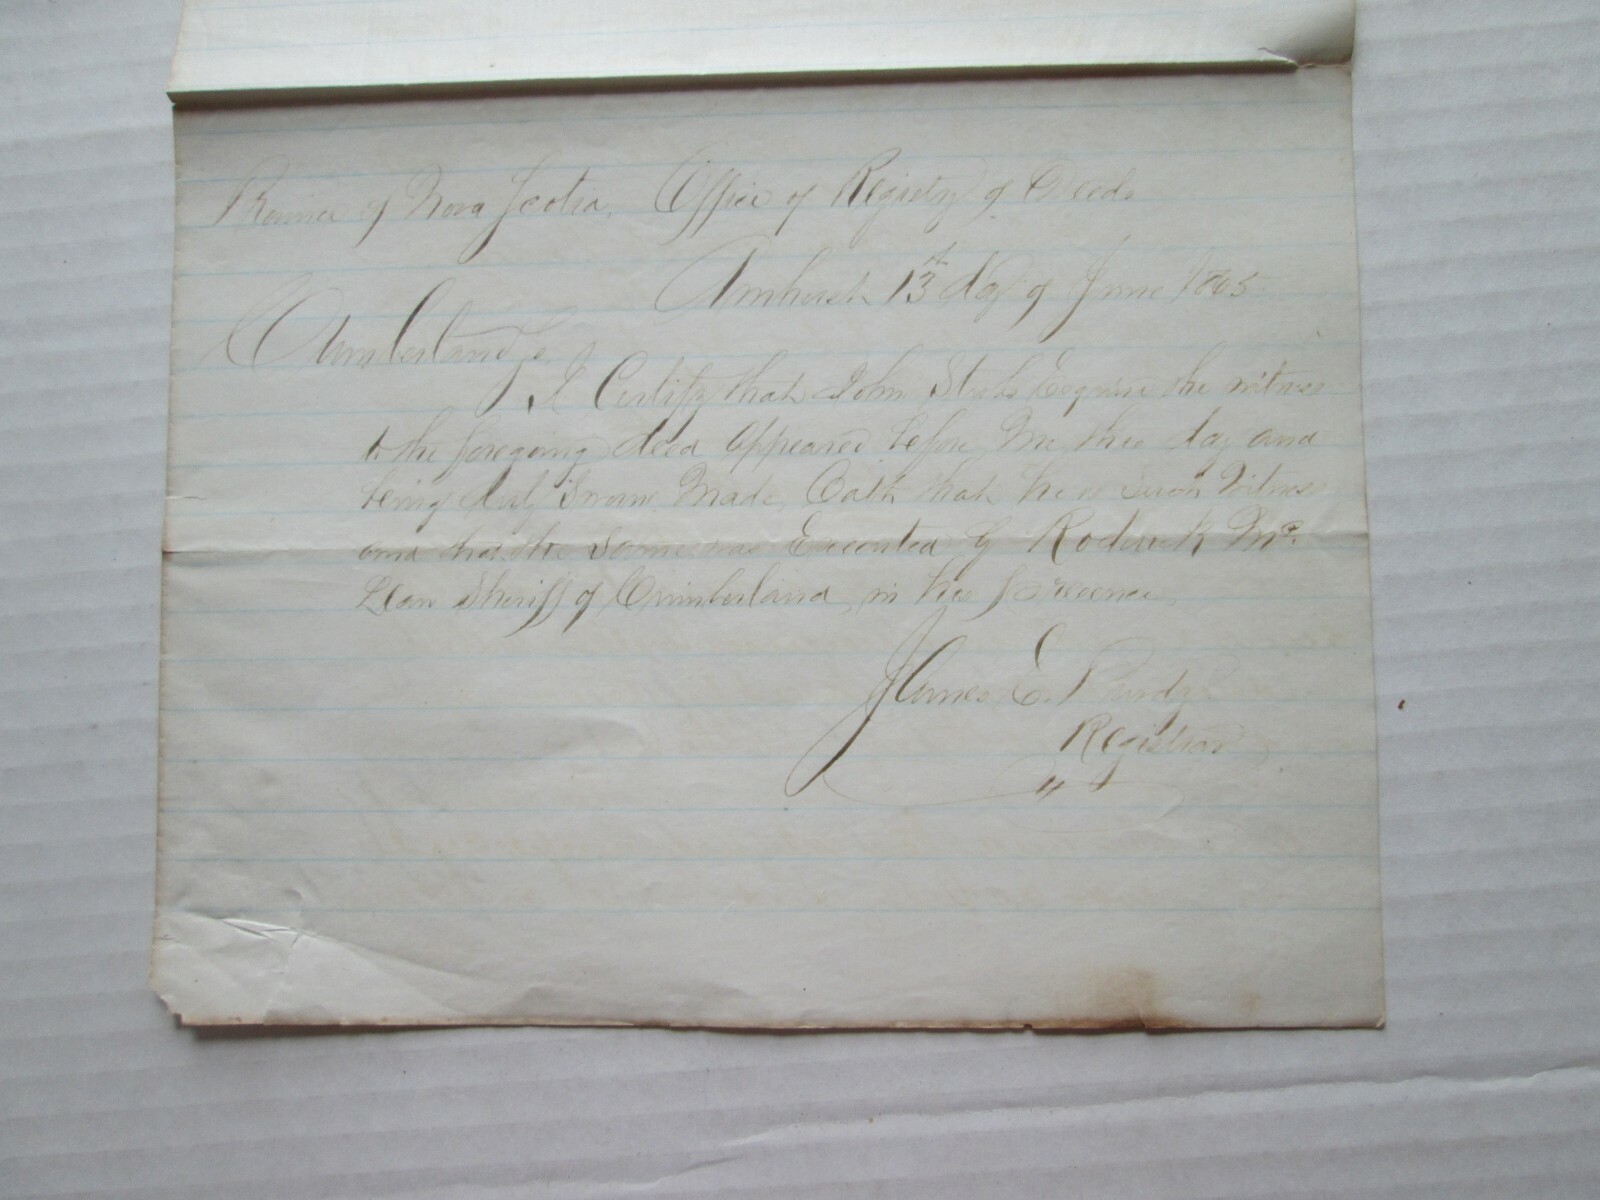 Province of Nova Scotia, Office of Registry of Deeds
Amherst 13th day of June 1865
Cumberland
I Certify that John Esquire the witness
to the foregoing deed appeared before me this day and
being duly Sworn Made Oath that he is Such Witness
and that the Same was Executed by Roderick Mc
Lean Sheriff of Cumberland in his presence
James E. Purdy
Registrar